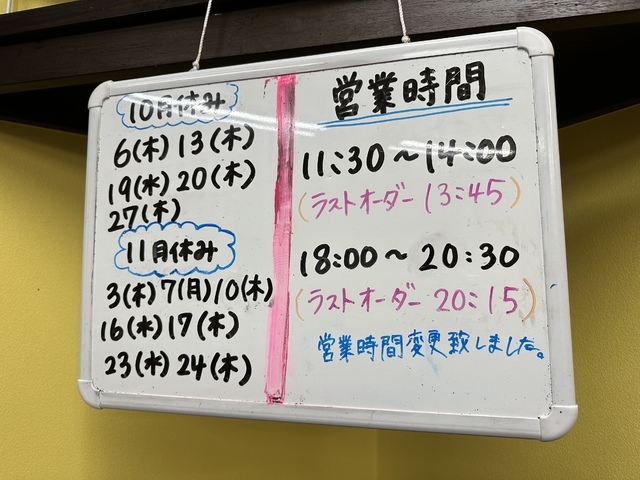 10月休み
6(木) 13(木)
19(水) 20(木)
27(木)
11月休み
3(木) 7(月) 10(木)
16(水) 17(木)
23(水) 24(木)
営業時間
11:30～14:00
(ラストオーダー 13:45)
18:00～20:30
(ラストオーダー 20:15)
営業時間変更致しました。